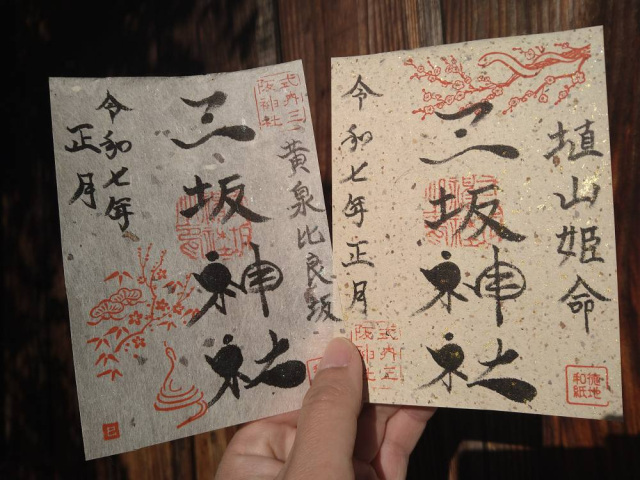 埴山姫命
三坂神社
令和七年正月
式内三
坂神社
徳地
和紙
式内三
坂神社
黄泉比良坂
三坂神社
令和七年
正月